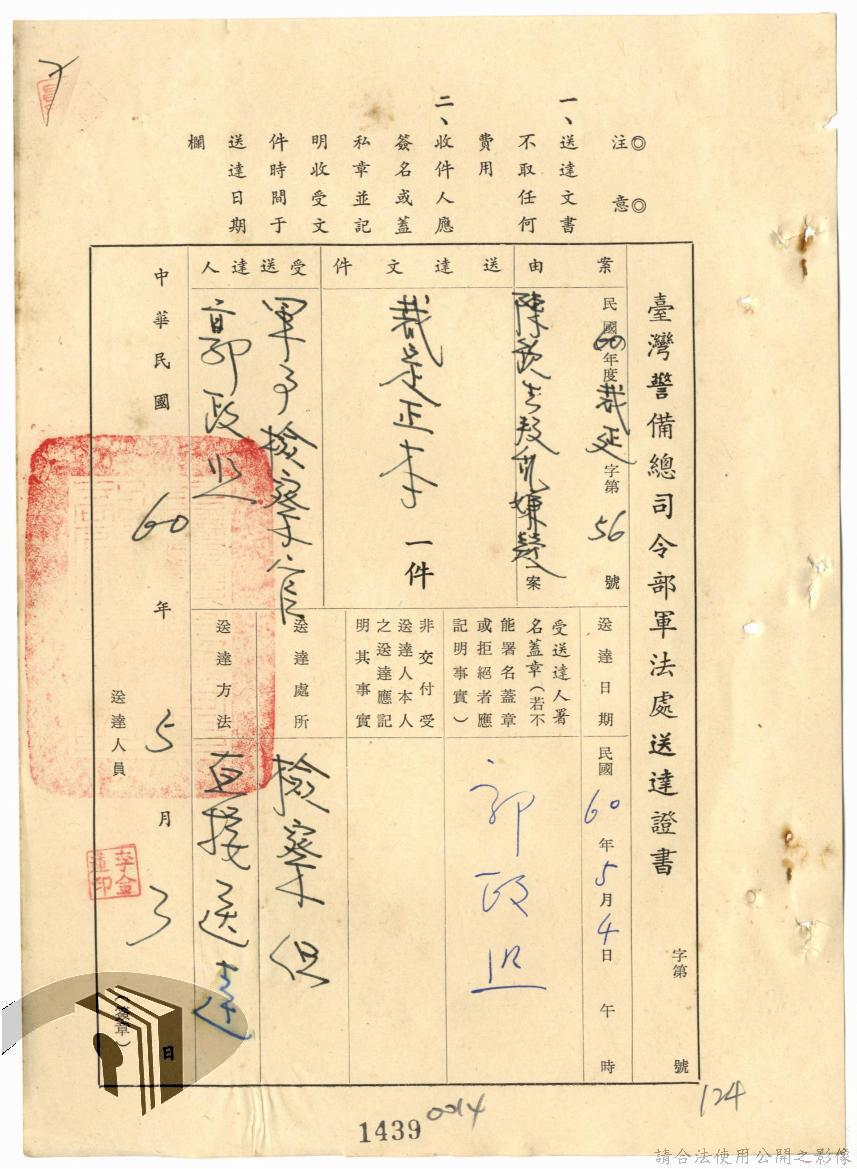 ◎注意◎
一、送達文書
不取任何
費用
二、收件人應
簽名或蓋
私章並記
明收受文
件時間于
送達日期
欄
臺灣警備總司令部軍法處送達證書
字第 號
案由
民國60年度裁正字第56號
叛亂嫌疑一案
送達文件
裁定正本一件
受送達人
軍事檢察官
郭政
送達日期
民國60年5月4日 午 時
受送達人署
名蓋章(若不
能署名蓋章
或拒絕者應
記明事實)
郭政
非交付受
送達人本人
之送達應記
明其事實
送達處所
檢察
送達方法
直接送達
中華民國60年5月3日
送達人員
(簽章)
李金蓮印
1439
0014
124
請合法使用公開之影像